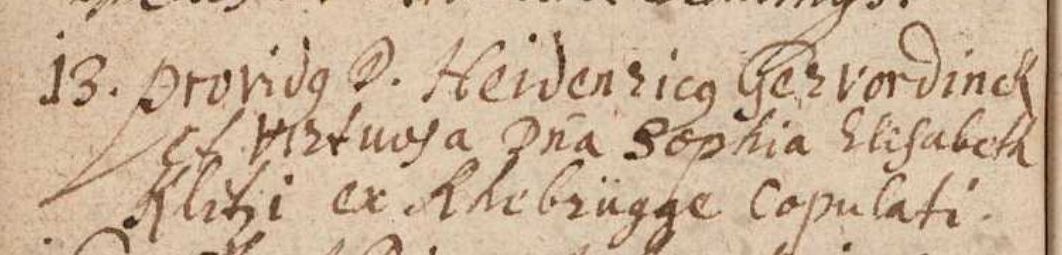 13. providꝯ D. Heidenricꝯ Gervordinck
et virtuosa Dña Sophia Elisabeth
Klitzi ex Rhebrügge copulati.